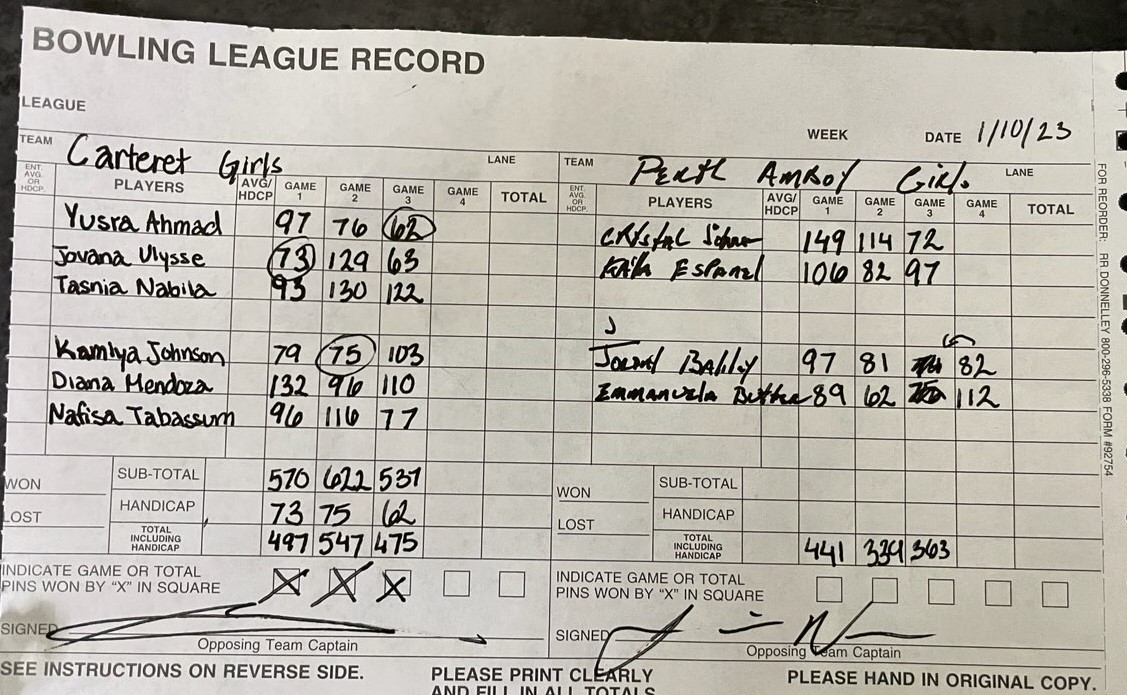 BOWLING LEAGUE RECORD
LEAGUE
WEEK DATE 1/10/23
TEAM Carteret Girls LANE TEAM Perth Amboy Girls LANE
ENT. AVG. OR HDCP. PLAYERS AVG/HDCP GAME 1 GAME 2 GAME 3 GAME 4 TOTAL ENT. AVG. OR HDCP. PLAYERS AVG/HDCP GAME 1 GAME 2 GAME 3 GAME 4 TOTAL
Yusra Ahmad 97 76 62 Crystal 149 114 72
Jovana Ulysse 73 129 63 106 82 97
Tasnia Nabila 93 130 122
J
Kamlya Johnson 79 75 103 97 81 82
Diana Mendoza 132 96 110 Emmanuela 89 62 112
Nafisa Tabassum 96 116 77
WON SUB-TOTAL 570 622 537 WON SUB-TOTAL
LOST HANDICAP 73 75 62 LOST HANDICAP
TOTAL INCLUDING HANDICAP 497 547 475 TOTAL INCLUDING HANDICAP 441 339 363
INDICATE GAME OR TOTAL PINS WON BY "X" IN SQUARE X X X INDICATE GAME OR TOTAL PINS WON BY "X" IN SQUARE
SIGNED SIGNED
Opposing Team Captain Opposing Team Captain
SEE INSTRUCTIONS ON REVERSE SIDE. PLEASE PRINT CLEARLY AND FILL IN ALL TOTALS PLEASE HAND IN ORIGINAL COPY.
FOR REORDER: RR DONNELLEY 800-296-5338 FORM #92754